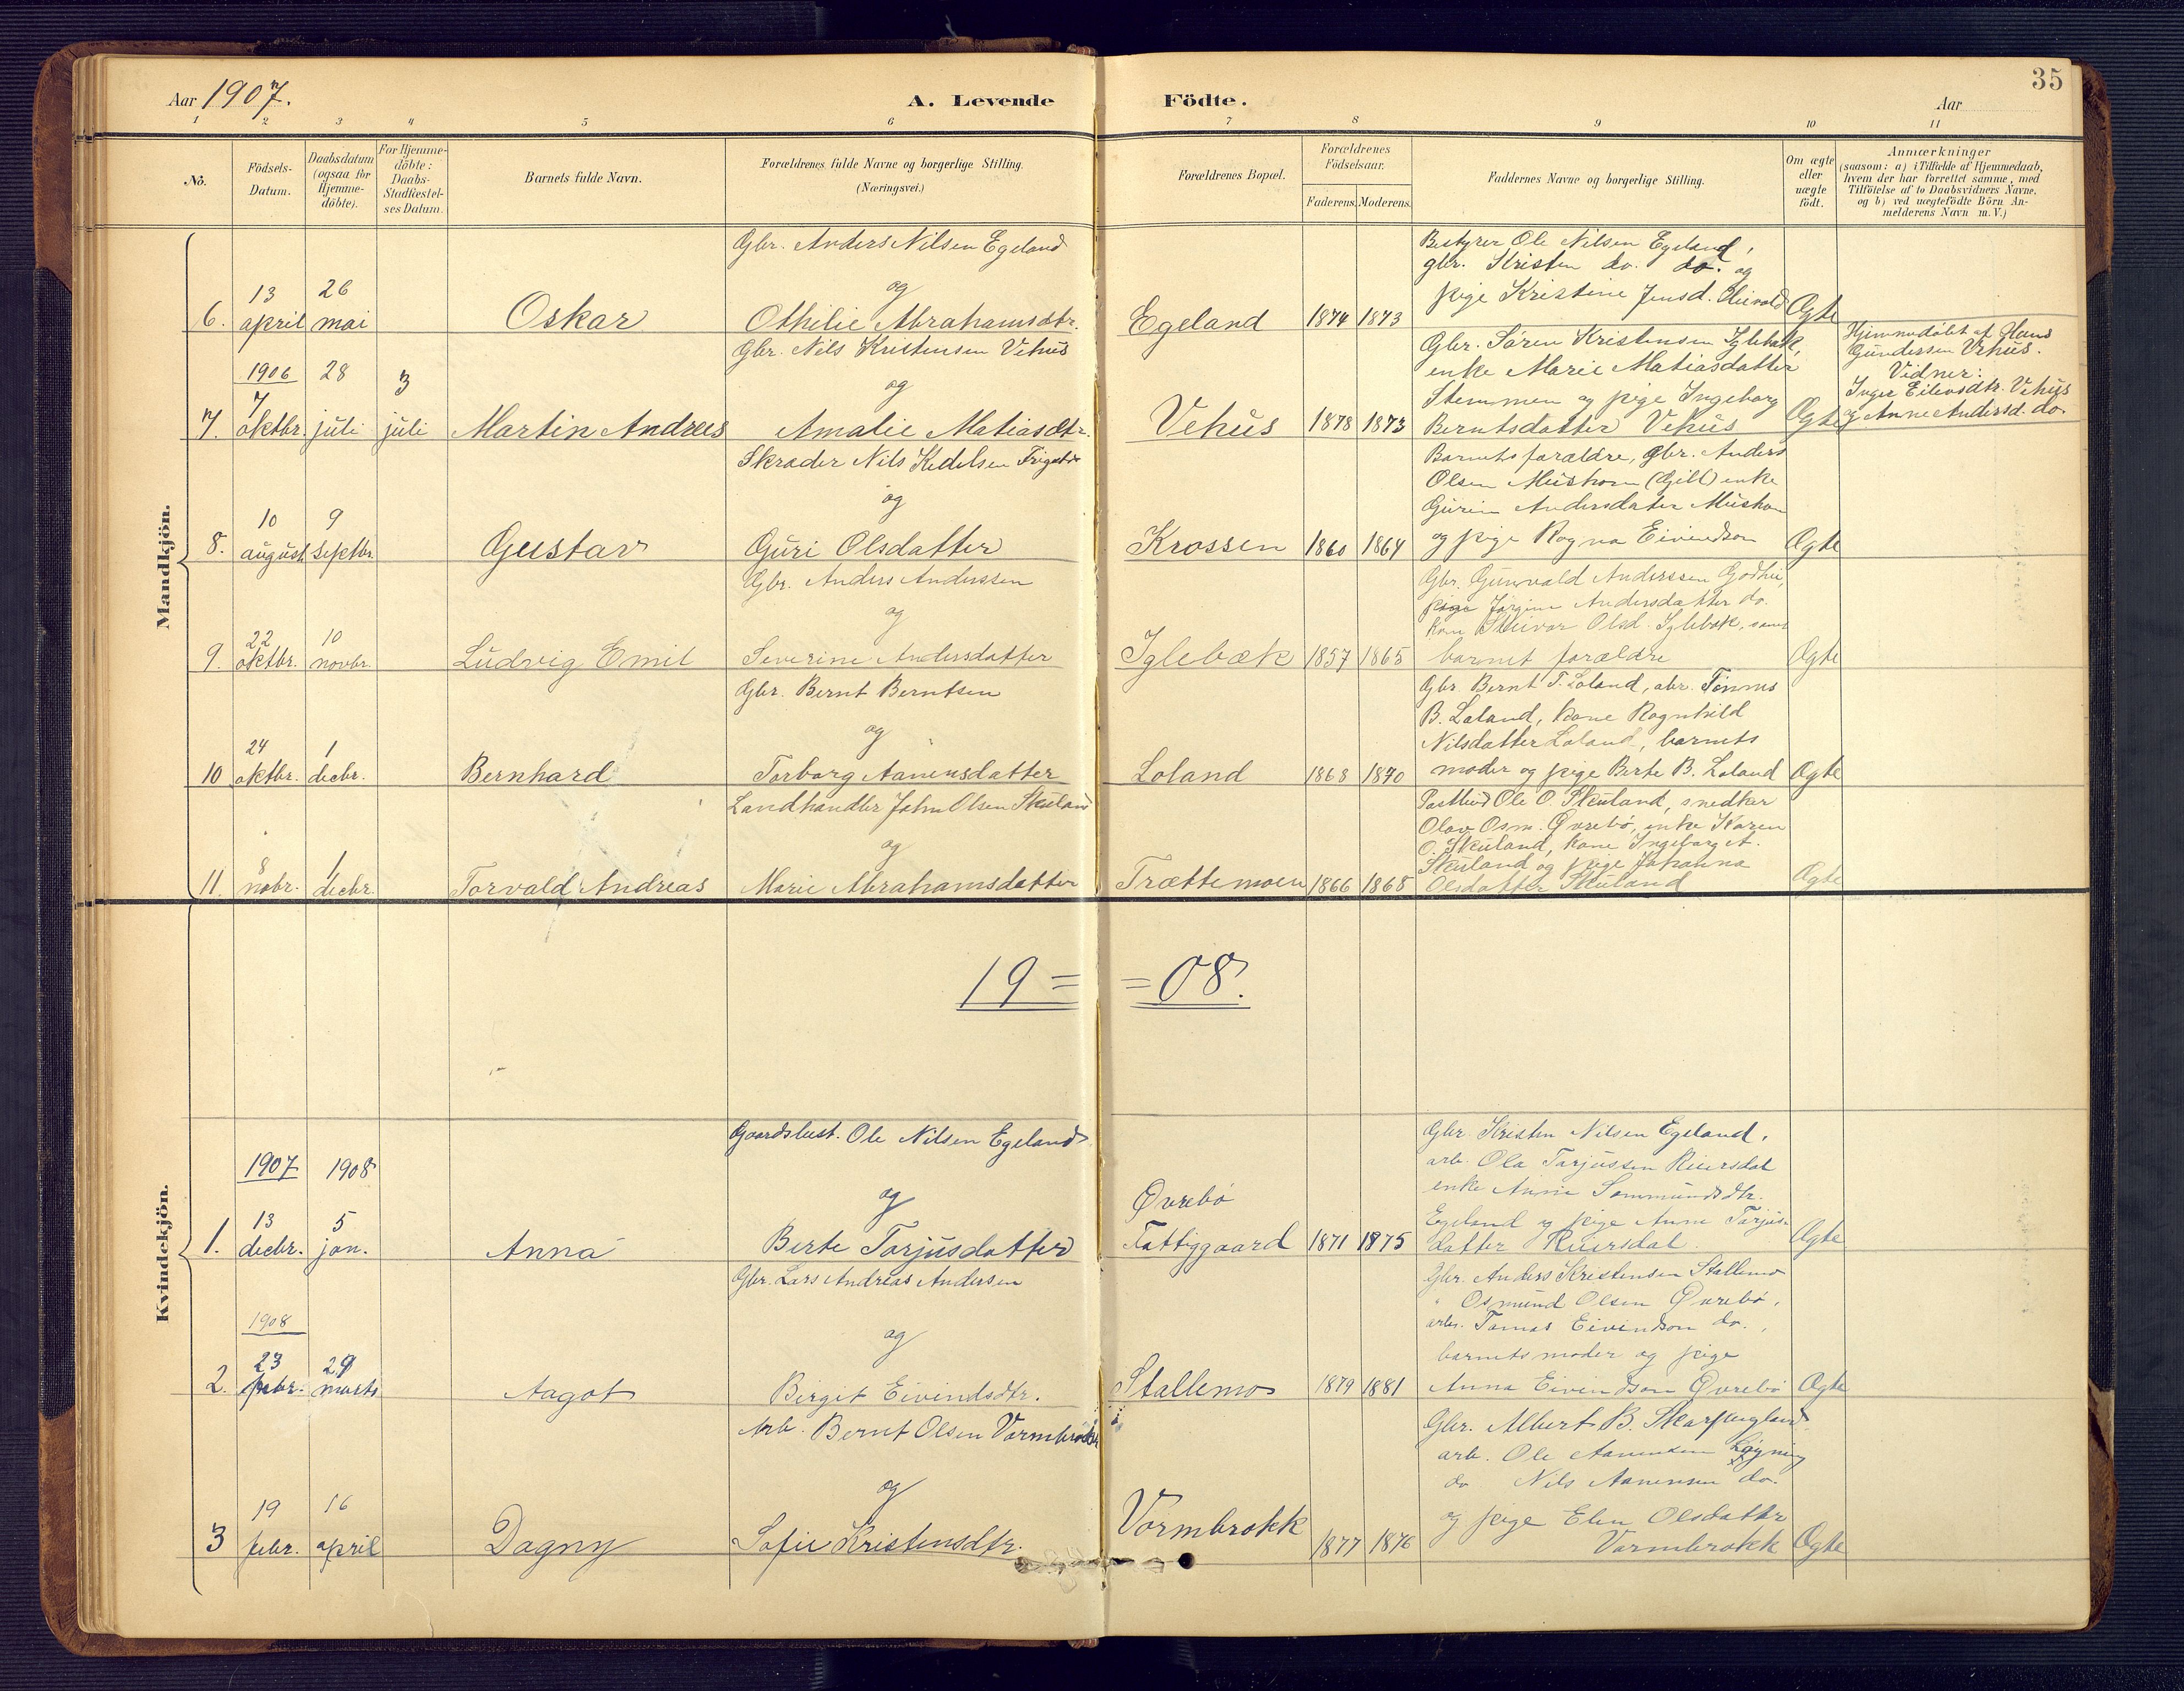 35
Aar 1907.
A. Levende Födte.
Aar
1 2 3 4 5 6 7 8 9 10 11
No.
Födsels-
Datum.
Daabsdatum
(ogsaa for
Hjemme-
döbte).
For Hjemme-
döbte:
Daabs-
Stadfæstel-
ses Datum.
Barnets fulde Navn.
Forældrenes fulde Navne og borgerlige Stilling.
(Næringsvei.)
Forældrenes Bopæl.
Forældrenes
Födselsaar.
Faderens.
Moderens.
Faddernes Navne og borgerlige Stilling.
Om ægte
eller
uægte
födt.
Anmærkninger
(saasom: a) i Tilfælde af Hjemmedaab,
hvem der har forrettet samme, med
Tilföielse af to Daabsvidners Navne,
og b) ved uægtefödte Börn An-
melderens Navn m. V.)
Mandkjön.
6.
13
april
26
mai
Oskar
Gbr. Anders Nilsen Egeland
og
Othilie Abrahamsdtr.
Egeland
1874
1873
Bestyrer Ole Nilsen Egeland,
gbr. Kristen do. do. og
pige Kristine Jensd.
Ægte
7.
1906
7
oktbr.
28
juli
3
juli
Martin Andreas
Gbr. Nils Kristensen Vehus
og
Amalie Matiasdtr.
Vehus
1878
1873
Gbr. Sören Kristensen Iglebæk,
enke Marie Matiasdatter
Stemmen og pige Ingeborg
Berntsdatter Vehus
Ægte
Hjemmedöbt af Hans
Gundersen Vehus.
Vidner:
Inger Eilevsdtr. Vehus
og Anne Andersd. do.
8.
10
august
9
septbr.
Gustav
Skræder Nils Kedelsen
og
Guri Olsdatter
Krossen
1860
1864
Barnets forældre, gbr. Anders
Olsen Mushom (Gill) enke
Gurine Andersdatter Mushom
og pige Ragna Eivindson
Ægte
9.
22
oktbr.
10
novbr.
Ludvig Emil
Gbr. Anders Anderssen
og
Severine Andersdatter
Iglebæk
1857
1865
Gbr. Gunvald Anderssen
pige Jörgine Andersdatter do.
kone Olsd. Iglebæk, samt
barnet forældre
Ægte
10
24
oktbr.
1
decbr.
Bernhard
Gbr. Bernt Berntsen
og
Torborg Aanensdatter
Loland
1868
1870
Gbr. Bernt T. Loland, abr. Tönnes
B. Loland, kone Ragnhild
Nilsdatter Loland, barnets
moder og pige Berte B. Loland
Ægte
11.
8
nobr.
1
decbr.
Torvald Andreas
Landhandler John Olsen Skuland
og
Marie Abrahamsdatter
Trættemoen
1866
1868
Ole O. Skuland, snedker
Olav Osm. Övrebö, enke Karen
O. Skuland, kone Ingeborg A.
Skuland og pige Johanna
Olsdatter Skuland
Ægte
19 = = 08.
Kvindekjön.
1.
1907
13
decbr.
1908
5
jan.
Anna
Gaardsbest. Ole Nilsen Egeland
og
Berte Torjusdatter
Övrebö
Fattiggaard
1871
1875
Gbr. Kristen Nilsen Egeland,
arb. Ola Torjussen Riiersdal
enke Anne Sommundsdtr.
Egeland og pige Anne Torjus-
datter Riiersdal.
Ægte
2.
1908
23
febr.
29
marts
Aagot
Gbr. Lars Andreas Andersen
og
Birgit Eivindsdtr.
Stallemo
1879
1881
Gbr. Anders Kristensen Stallemo
" Osmund Olsen Övrebö,
arb. Tomas Eivindson do.,
barnets moder og pige
Anna Eivindson Övrebö
Ægte
3
19
febr.
16
april
Dagny
Arb. Bernt Olsen Vormbrokk
og
Sofie Kristensdtr.
Vormbrokk
1877
1876
Gbr. Albert B. Skarpengland
arb. Ole Aanensen Löyning
do Nils Aanensen do.
og pige Elen Olsdatter
Vormbrokk
Ægte